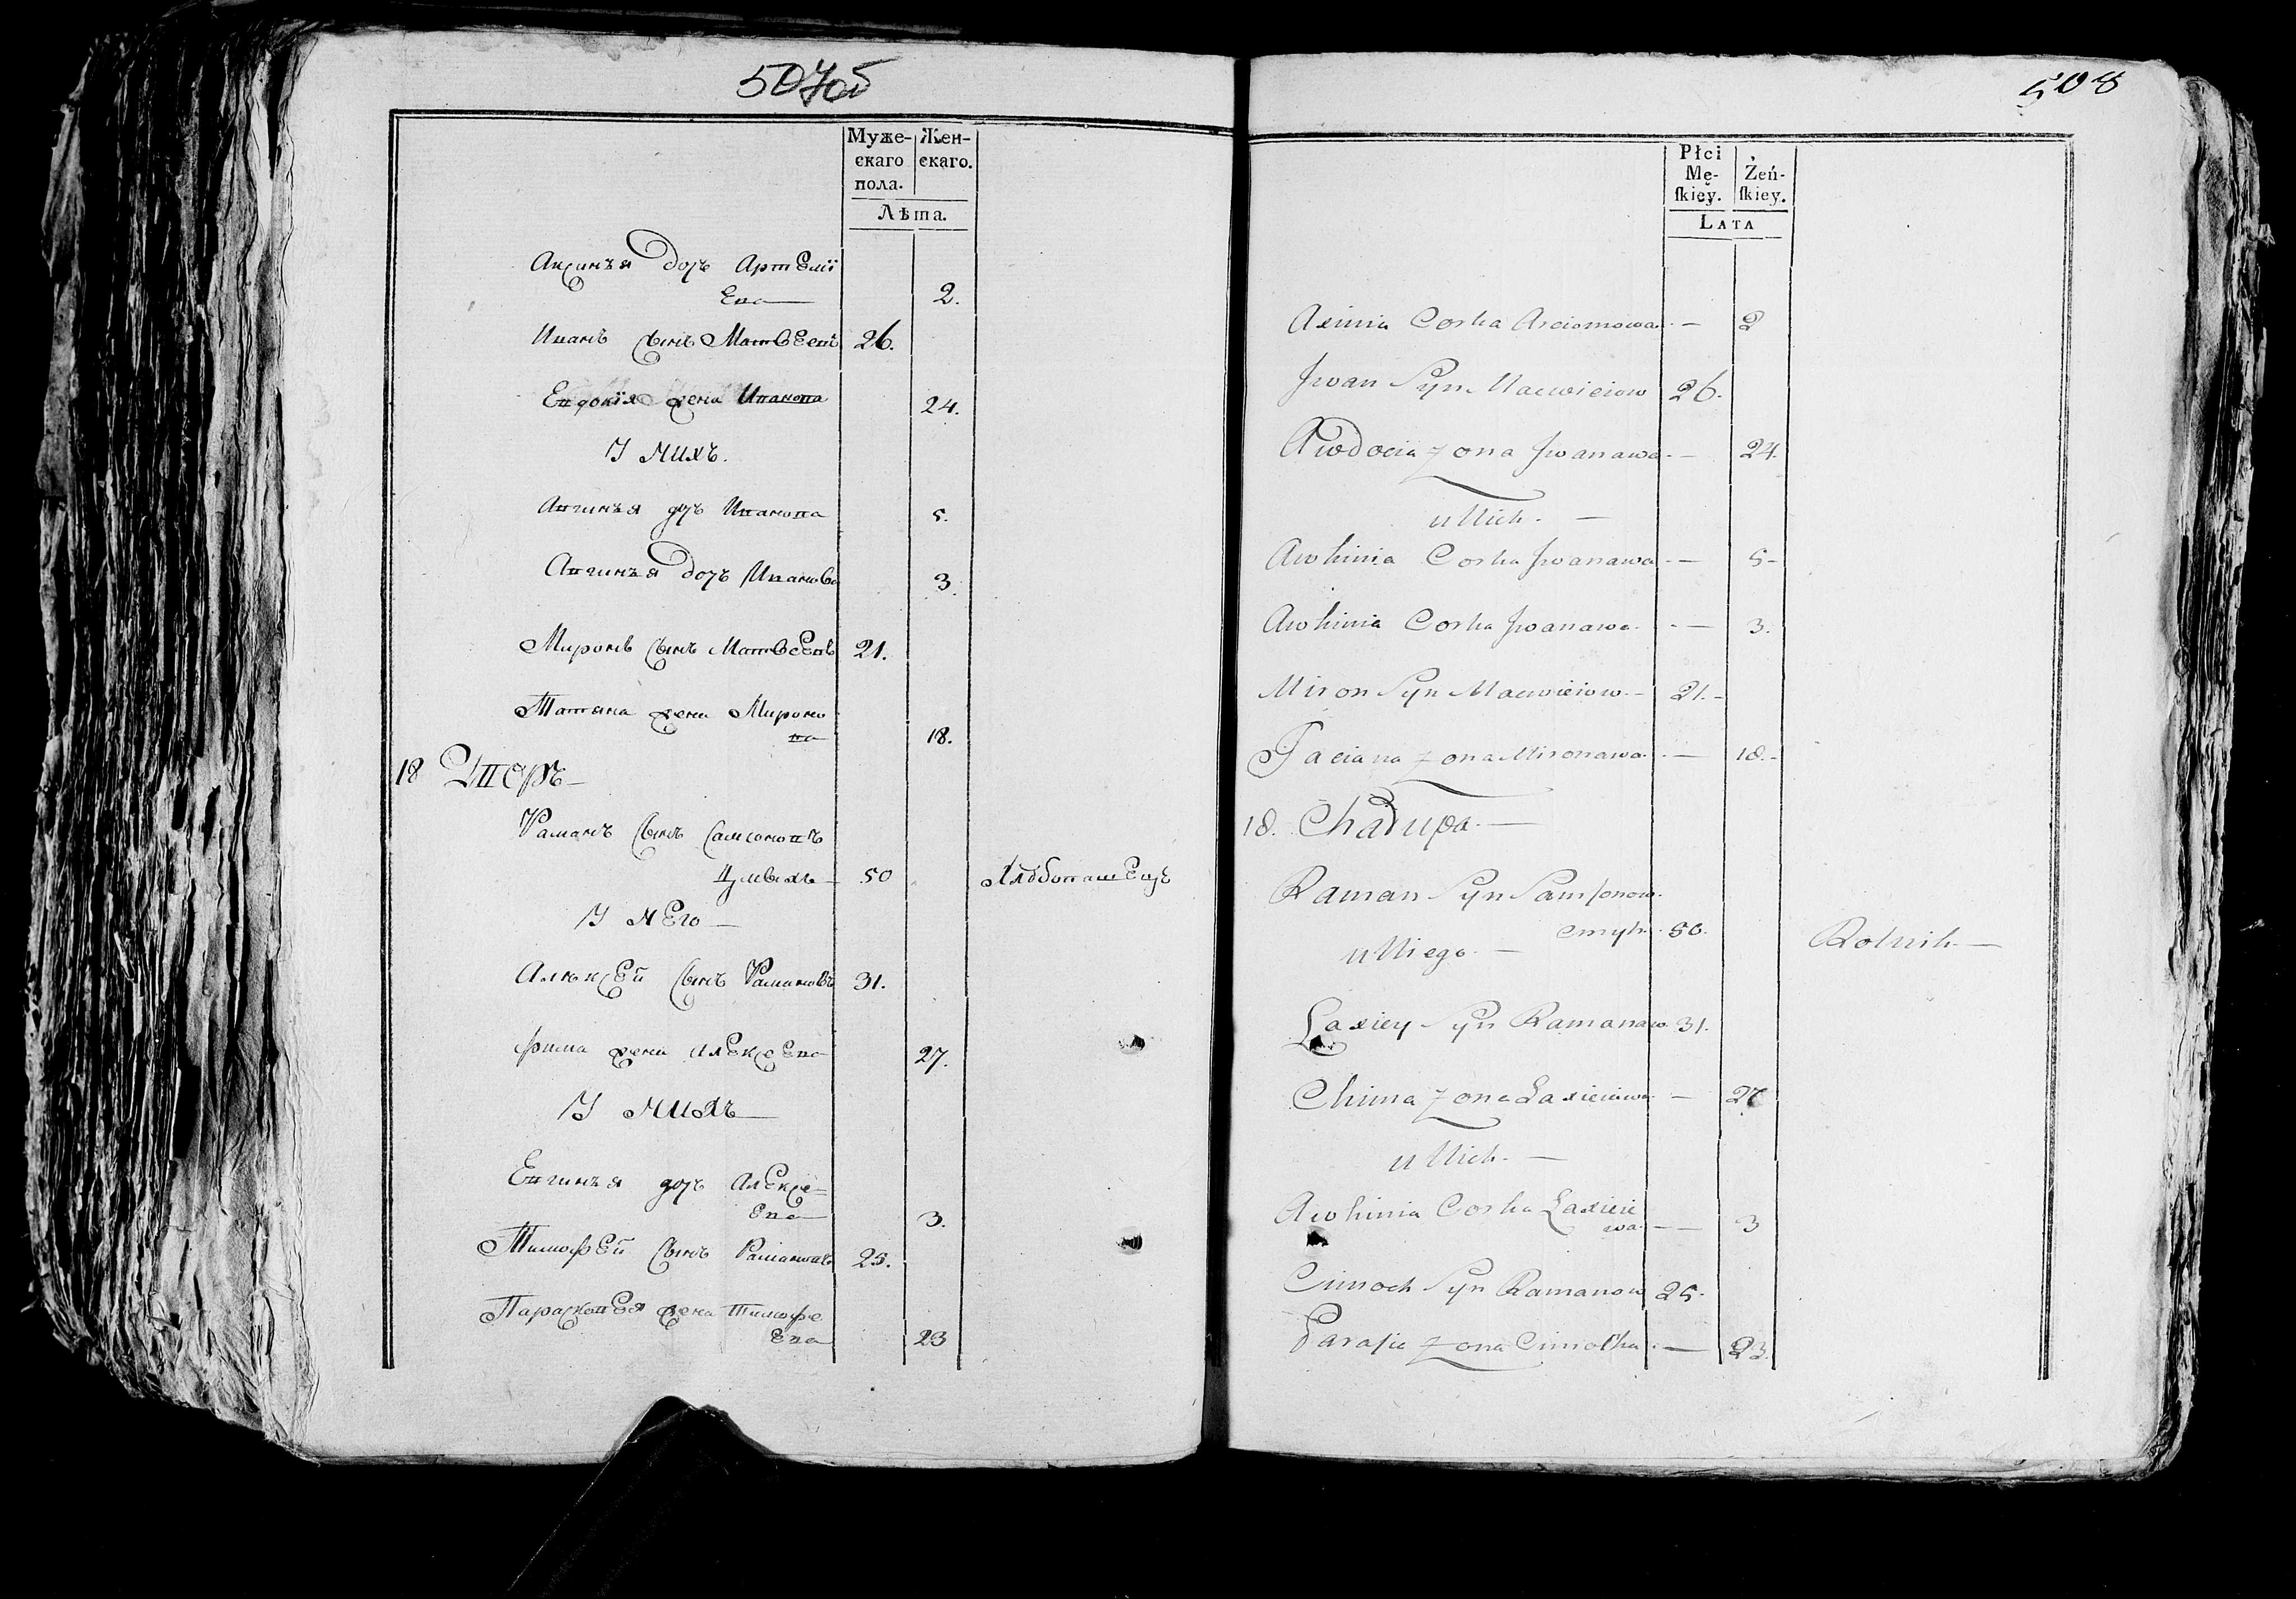 507об
Муже- Жен-
скаго скаго.
пола.
Лѣта.
Аксинья дочь Артемі
ева 2.
Иванъ сынъ Матвеевъ 26.
Евдокія жена Иванова 24.
У нихъ.
Авгинья дочъ Иванова 5.
Авгинья дочъ Иванова 3.
Миронъ сынъ Матвеевъ 21.
Татяна жена Мироно
ва 18.
18 Дворъ
Раманъ сынъ Самсоновъ
50 Хлѣбопашецъ
У него
Алексей сынъ Рамановъ 31.
Фима жена Алексеева 27.
У нихъ
Евгинья дочъ Алексе=
ева 3.
Тимофей сынъ Рамановъ 25.
Парасковея жена Тимофе
ева 23
508
Płci Żeń-
Mę- skiey.
skiey.
LATA
Axinia Corka Arciomowa — 2
Jwan Syn Macwieiow 26.
Awdocia zona Jwanawa — 24.
u Nich. —
Awhinia Corka Jwanawa — 5-
Awhinia Corka Jwanawa — 3.
Miron Syn Macwieiow — 21.-
Taciana zona Mironawa — 18.-
18. Chałupa. —
Raman Syn Samsonow
Cmyh 50. Rolnik —
u Niego. —
Laxiey Syn Ramanaw 31.
Chima zona Laxieiewa — 27
u Nich. —
Awhinia Corka Laxieie
wa — 3
Cimoch Syn Ramanow 25.
Parasia zona Cimocha — 23.